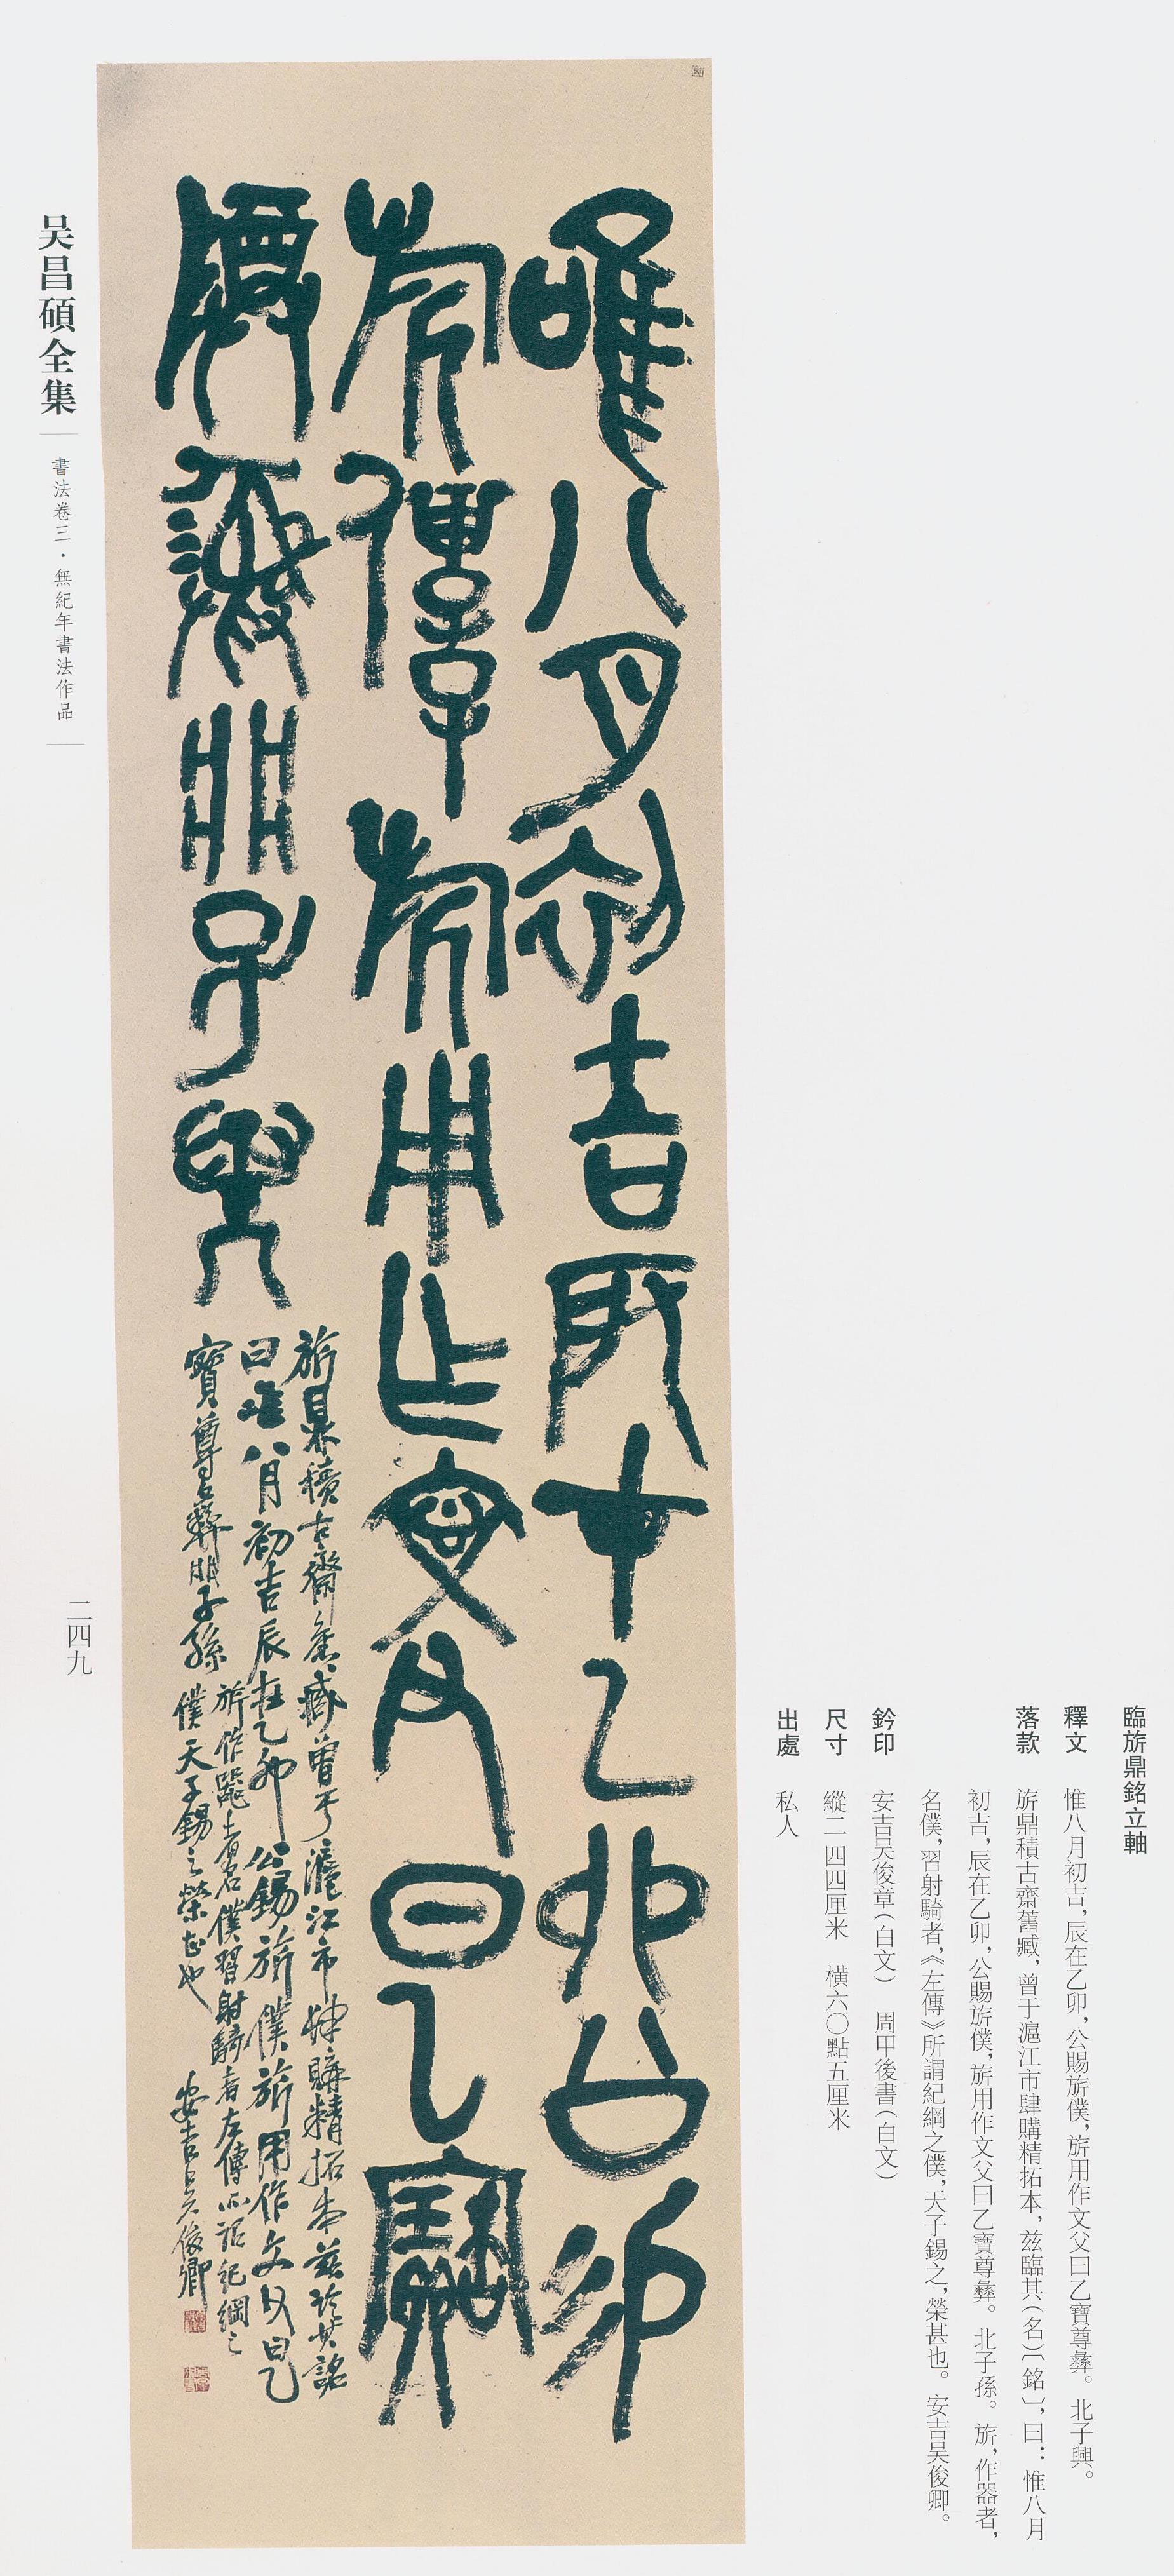 臨旂鼎銘立軸
釋文　惟八月初吉，辰在乙卯，公賜旂僕，旂用作文父曰乙寶尊彝。北子興。
落款　旂鼎積古齋舊臧，曾于滬江市肆購精拓本，兹臨其（名）〔銘〕，曰：惟八月
初吉，辰在乙卯，公賜旂僕，旂用作文父曰乙寶尊彝。北子孫。旂，作器者，
名僕，習射騎者，《左傳》所謂紀綱之僕，天子錫之，榮甚也。安吉吴俊卿。
鈐印　安吉吴俊章（白文）　周甲後書（白文）
尺寸　縱二四四厘米　橫六〇點五厘米
出處　私人
唯八月初吉辰才乙卯公易
旂僕旂用作文父日乙寶
尊彝
子
旂鼎積古齋舊臧曾于滬江市肆購精拓本兹臨其銘
曰唯八月初吉辰在乙卯公錫旂僕旂用作文父曰乙
寶尊彝子孫
旂作器者名僕習射騎者左傳所謂紀綱之
僕天子錫之榮甚也
安吉吴俊卿
吴昌碩全集
書法卷三·無紀年書法作品
二四九